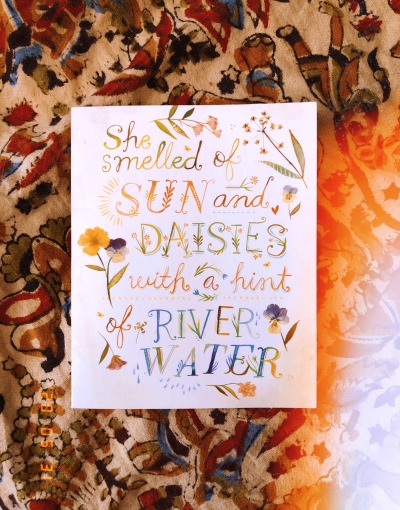 She
smelled of
SUN and
DAISIES
with a hint
of RIVER
WATER